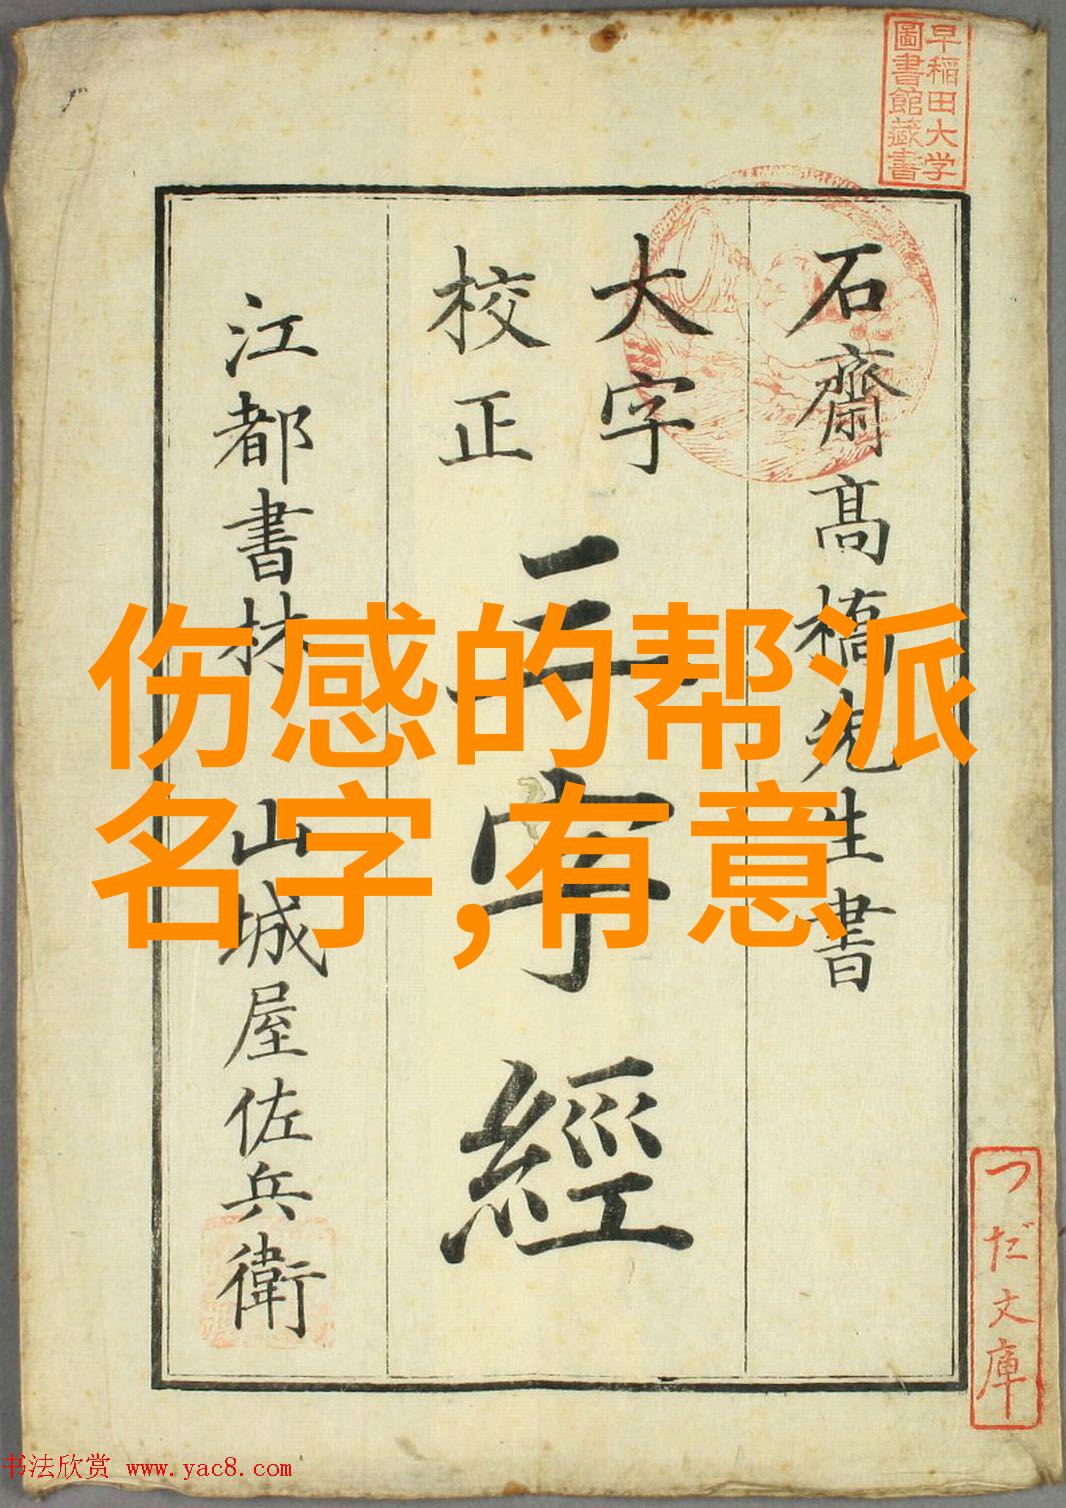 早稲田大学
圖書館藏書
石齋髙橋先生書
大字
校正
三字經
江都書林 山城屋佐兵衛
伤感的帮派
名字,有意
つだ文庫
书法欣赏 www.yac8.com